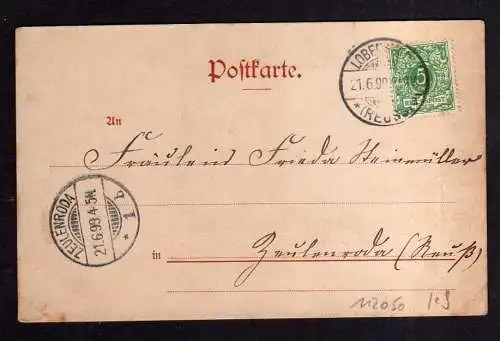 Postkarte.
LOBEN
21.6.98
* (REUSS)
5
An
Fräulein Frieda Steinmüller
ZEULENRODA
21.6.98.4-5N.
* 1 b
in Zeulenroda (Reuß)
112050